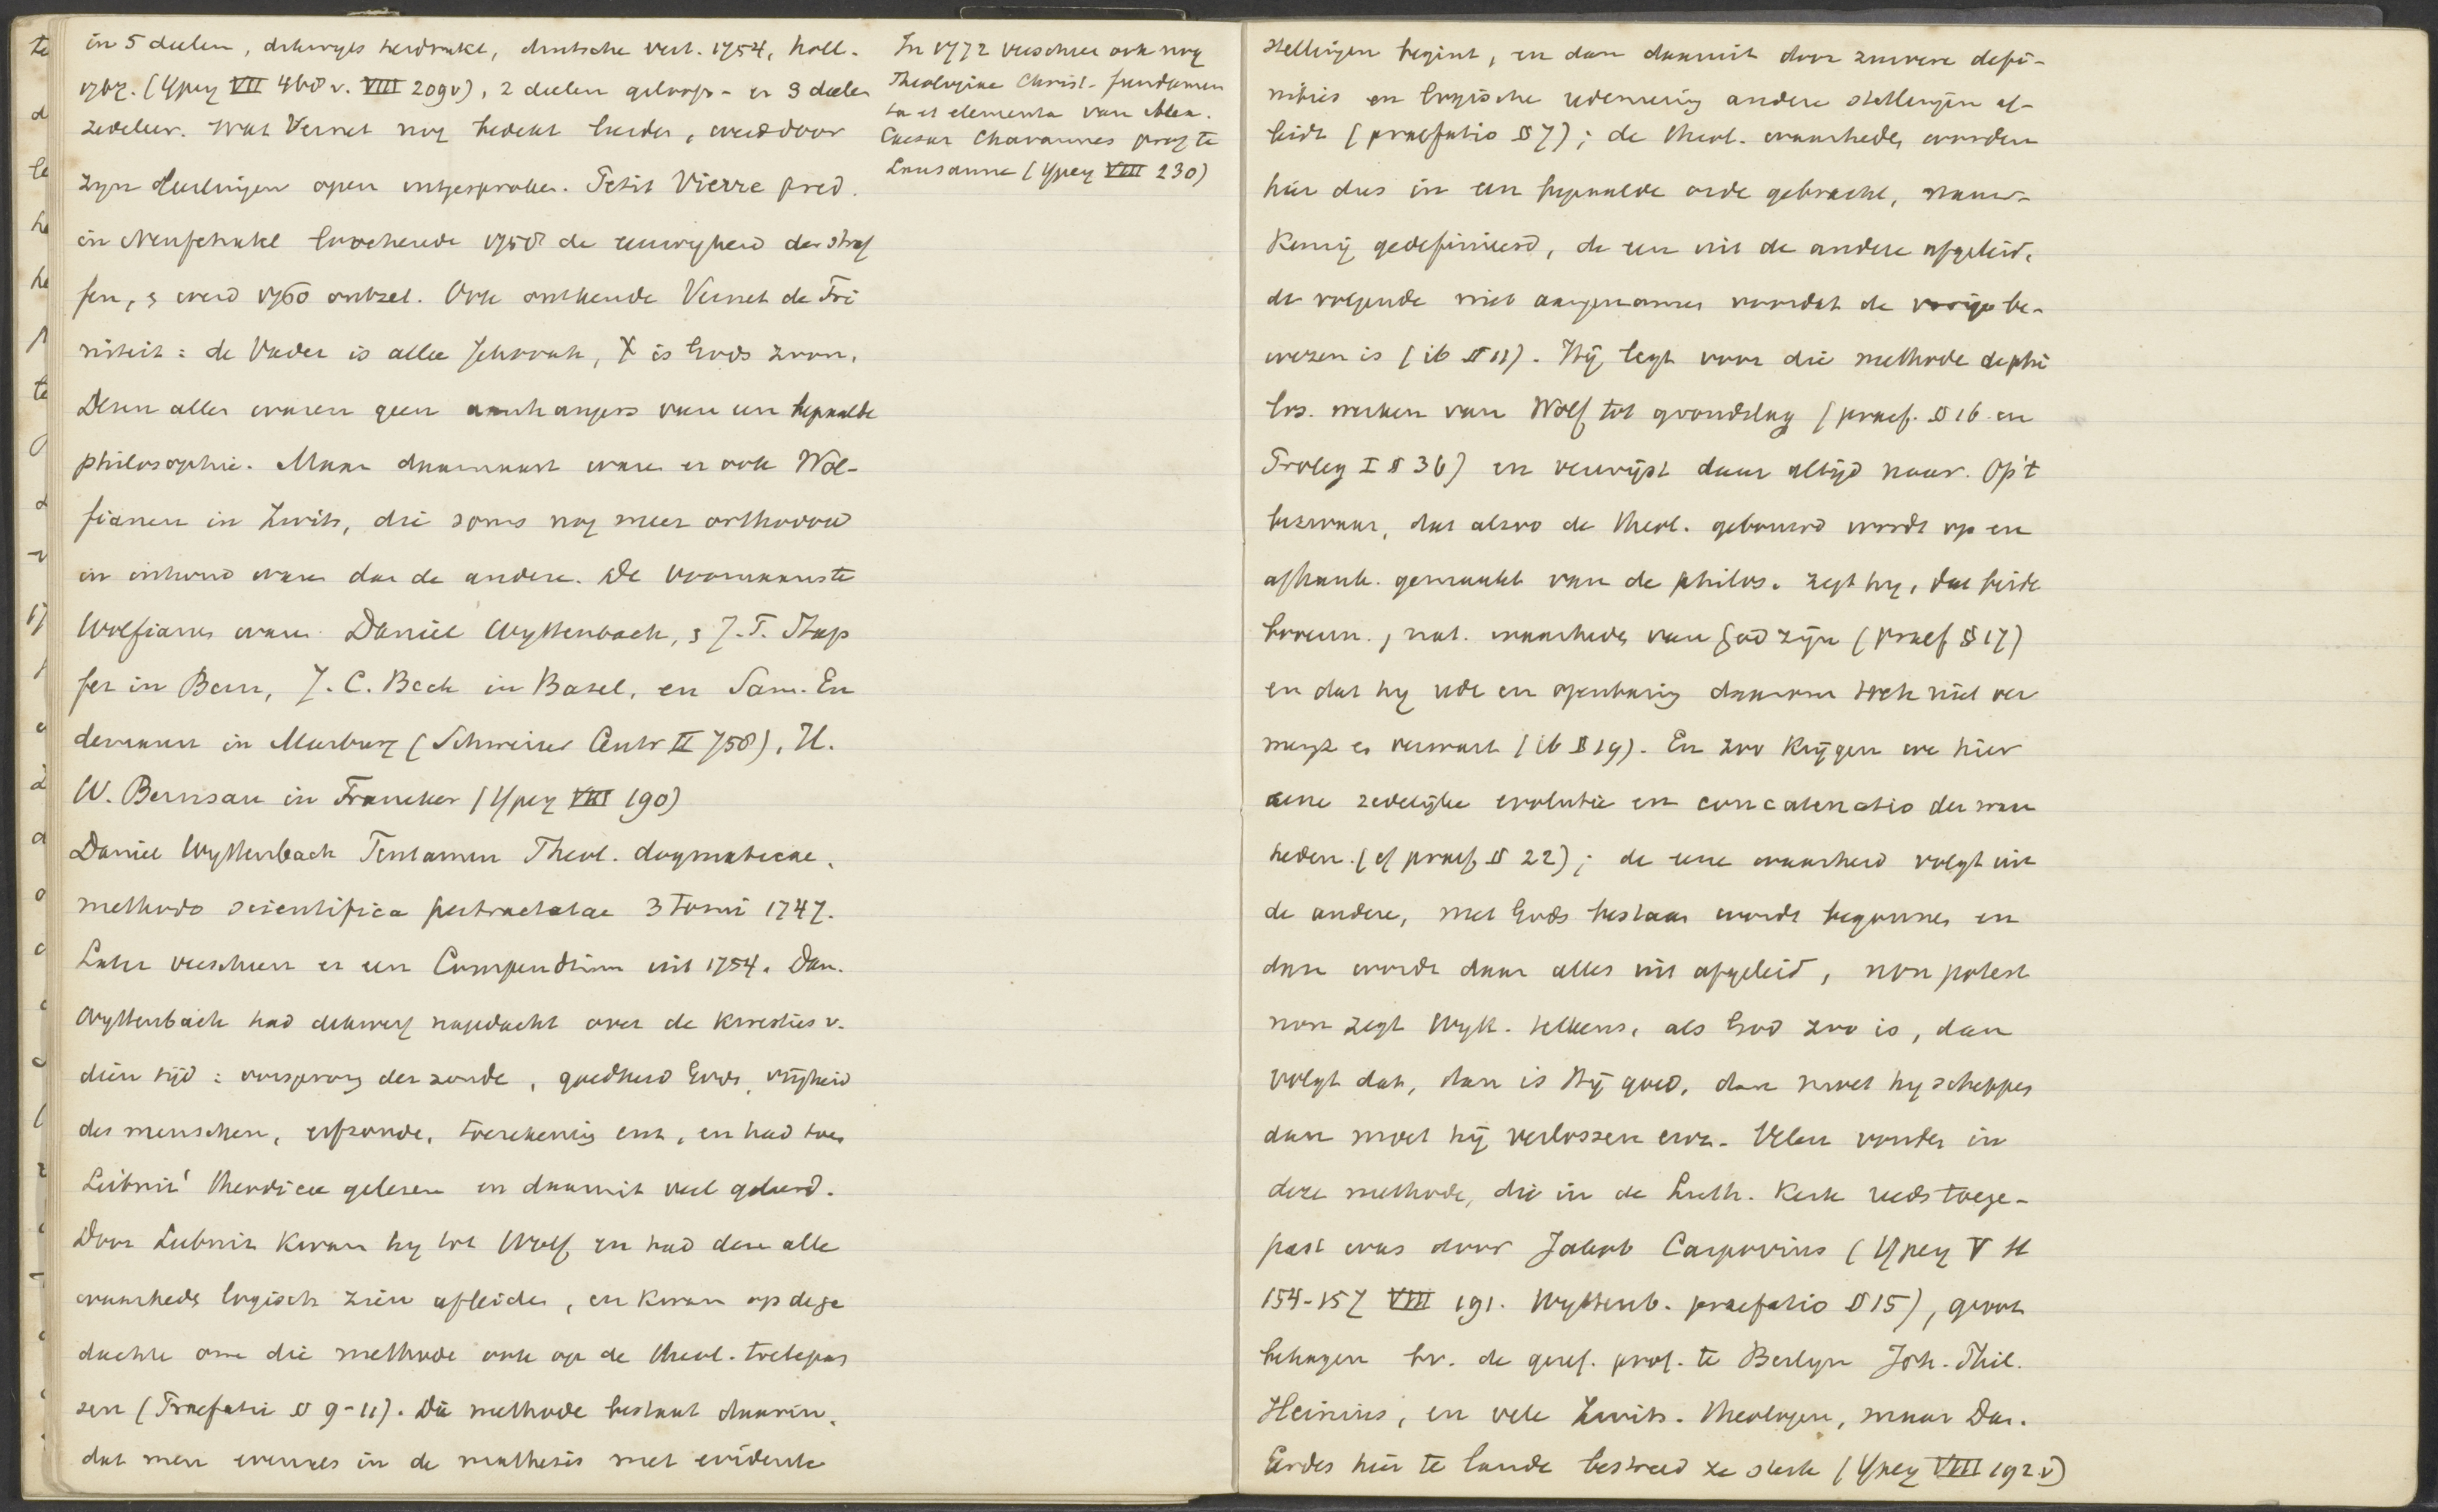 in 5 deelen, dikwijls herdrukt, duitsche vert. 1754, holl.
(Ypey VII 468 v. VIII 209v), 2 deelen geloofs- en 3 deelen
zedeleer. Wat Vernet nog bedekt leerde, werd door
zyn leerlingen open uitgesproken. Petit Pierre pred.
in Neufchatel loochende 1758 de eeuwigheid der straf
fen, & werd 1760 ontzet. Ook ontkende Vernet de Tri
niteit: de Vader is alleen Jehovah, X is Gods zoon.
Dezen allen waren geen aanhangers van een bepaalde
philosophie. Maar daarnaast waren er ook Wol-
fianen in Zwits, die soms nog meer orthodox
in inhoud waren dan de andere. De voornaamste
Wolfianen waren Daniel Wyttenbach, & J. F. Stap
fer in Bern, J. C. Beck in Basel, en Sam. En
demann in Marburg (Schweizer Centr II 758), H.
W. Bernsau in Franeker (Ypey VIII 190)
Daniel Wyttenbach Tentamen Theol. dogmaticae,
methodo scientifica pertractatae 3 Tomi 1747.
Later verscheen er een Compendium uit 1754. Dan.
Wyttenbach had dikwerf nagedacht over de kwesties v.
dien tijd: oorsprong der zonde, goedheid Gods, vrijheid
des menschen, erfzonde, toerekening enz, en had toen
Leibniz' Theodicee gelezen en daaruit veel geleerd.
Door Leibniz kwam hy tot Wolf, en had deze alle
waarheden logisch zien afleiden, en kwam op de ge
dachte om die methode ook op de theol. toetepas
sen (Praefatio § 9-11). Die methode bestaat daarin,
dat men evenals in de mathesis met evidente
In 1772 verscheen ook nog
Theologiae Christ. fundamen
ta et elementa van Alex.
Caesar Chavannes prof te
Lausanne (Ypey VIII 230)
stellingen begint, en dan daaruit door zuivere defi-
nities en logische redenering andere stellingen af-
leidt (praefatio § 7); de theol. waarheden worden
hier dus in een bepaalde orde gebracht, nauw-
keurig gedefinieerd, de een uit de andere afgeleid,
de volgende niet aangenomen voordat de vorige be-
wezen is (ib § 11). Hij legt voor die methode de phi
los. werken van Wolf tot grondslag (praef. § 16 en
Proleg I § 36) en verwijst daar altijd naar. Op 't
bezwaar, dat alzoo de theol. gebouwd wordt op en
afhank. gemaakt van de philos. zegt hy, dat beide
bovenn. & nat. waarheden van God zijn (praef § 17)
en dat hy rede en openbaring daarom toch niet ver
mengt en verwart (ib § 19). En zoo krijgen we hier
eene zedelijke evolutie en concatenatio der waar
heden. (cf praef § 22); de eene waarheid volgt uit
de andere, met Gods bestaan wordt begonnen en
dan wordt daar alles uit afgeleid, non potest
non zegt Wytt. telkens, als God zoo is, dan
volgt dat, dan is Hij goed, dan moet hy scheppen
dan moet hij verlossen enz. Velen vonden in
deze methode, die in de Luth. Kerk reeds toege-
past was door Jakob Carpovius (Ypey V H
154-157 VIII 191. Wyttenb. praefatio § 15), groot
behagen bv. de geref. prof. te Berlyn Joh. Phil.
Heinius, en vele Zwits. theologen, maar Dan.
Gerdes hier te lande bestreed ze sterk (Ypey VIII 192 v)